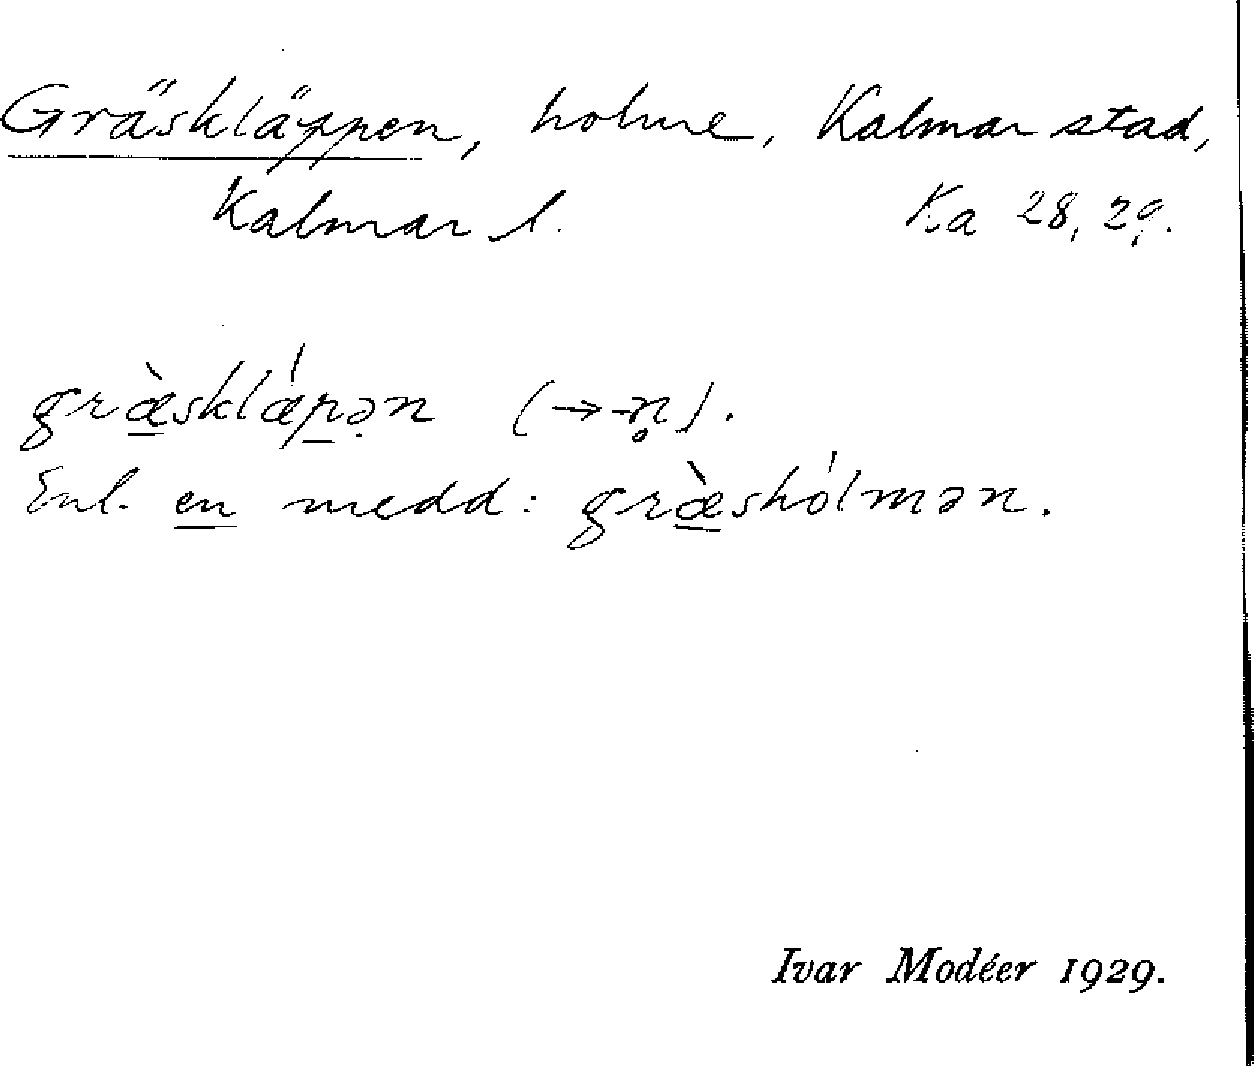 Gräskläppen, holme, Kalmar stad,
Kalmar l. Ka 28, 29.
græ̠̀sklǽp̠ə̣n (→-n̥).
Enl. en medd: græ̠̀shólmən.
Ivar Modéer 1929.